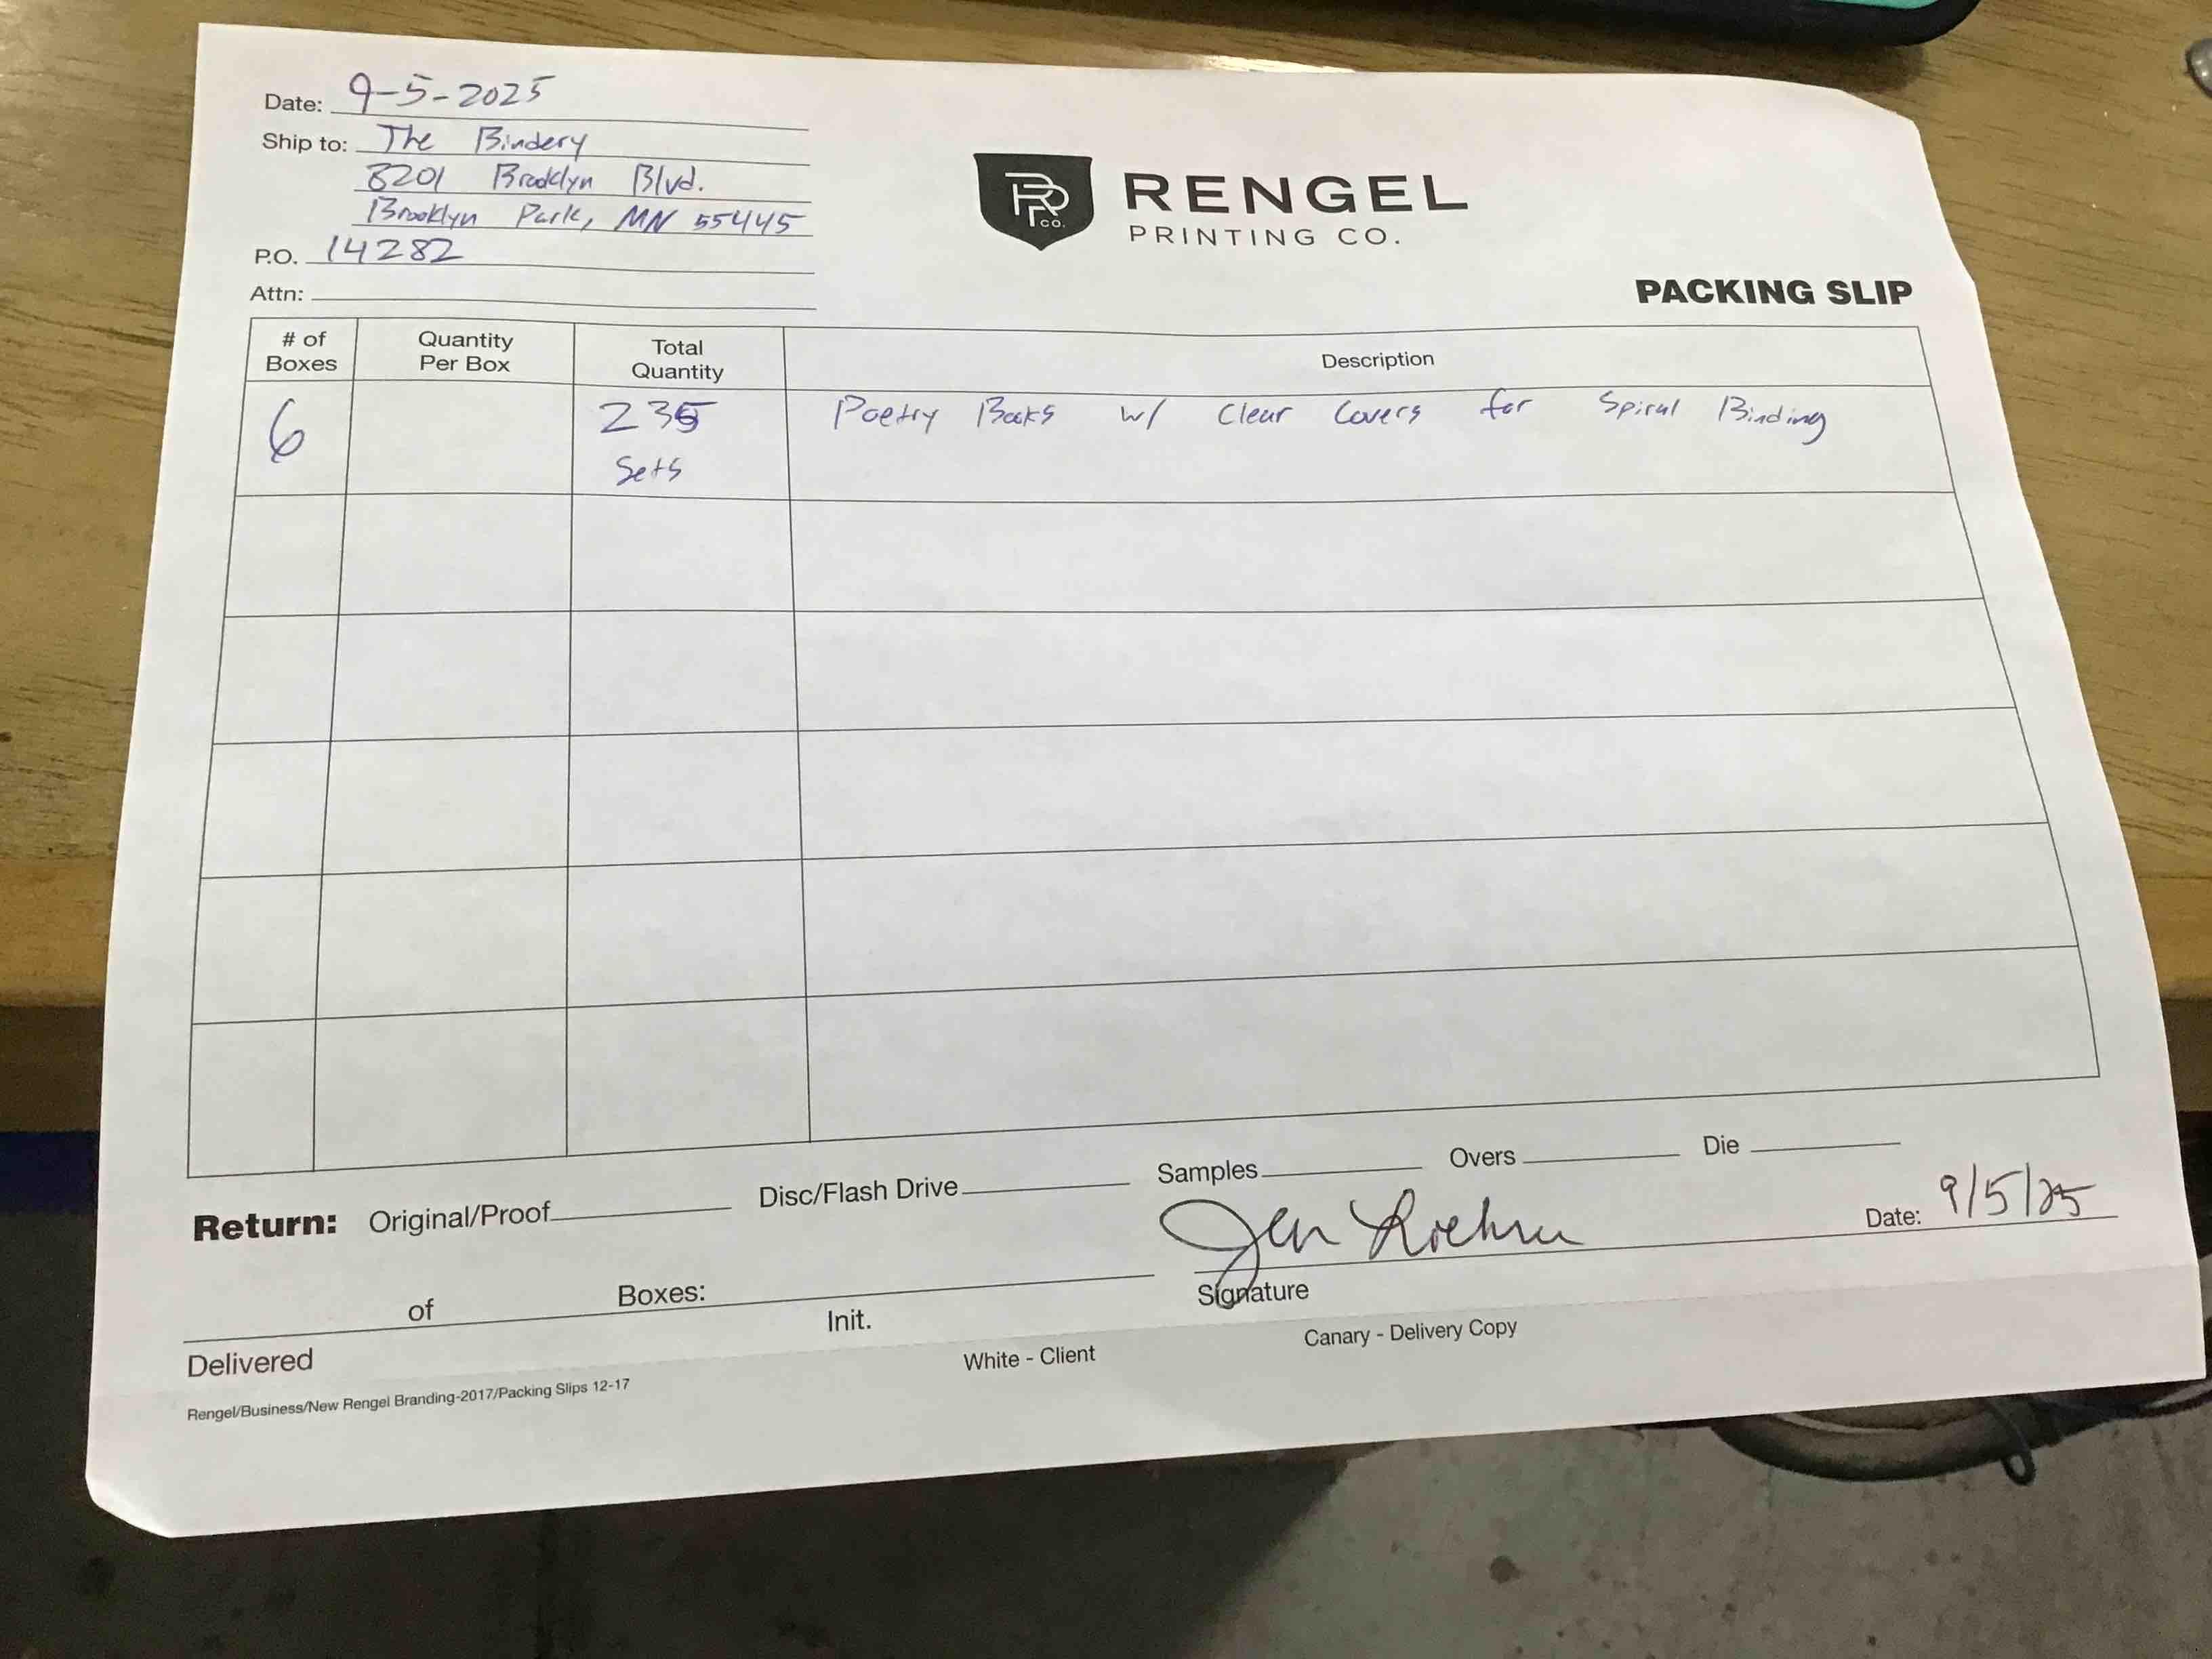 Date: 9-5-2025
Ship to: The Bindery
8201 Brooklyn Blvd.
Brooklyn Park, MN 55445
P.O. 14282
Attn:
PR CO.
RENGEL
PRINTING CO.
PACKING SLIP
# of Boxes Quantity Per Box Total Quantity Description
6 235 Poetry Books w/ Clear Covers for Spiral Binding
Sets
Return: Original/Proof Disc/Flash Drive Samples Overs Die
Jen Date: 9/5/25
of Boxes: Signature
Delivered Init.
White - Client Canary - Delivery Copy
Rengel/Business/New Rengel Branding-2017/Packing Slips 12-17